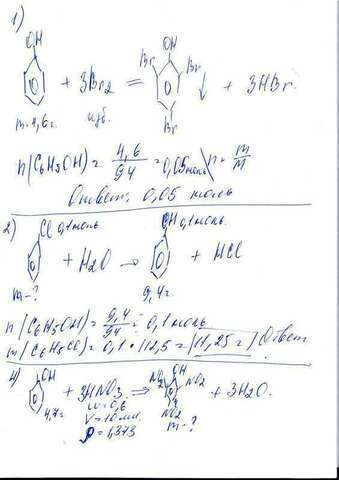 1)
OH
Br OH Br
+ 3Br2 = ↓ + 3HBr.
Br
m=4,6г. изб.
n(C6H5OH) = 4,6/94 = 0,05моль \ n = m/M
Ответ: 0,05 моль
2) Cl 0,1моль OH 0,1моль
+ H2O → + HCl
m-? 9,4г.
n(C6H5OH) = 9,4/94 = 0,1моль
m(C6H5Cl) = 0,1·112,5 = 11,25г Ответ
4) OH NO2 OH NO2
+ 3HNO3 → + 3H2O.
4,7г w=0,6 NO2
V=10мл. m-?
ρ=1,373